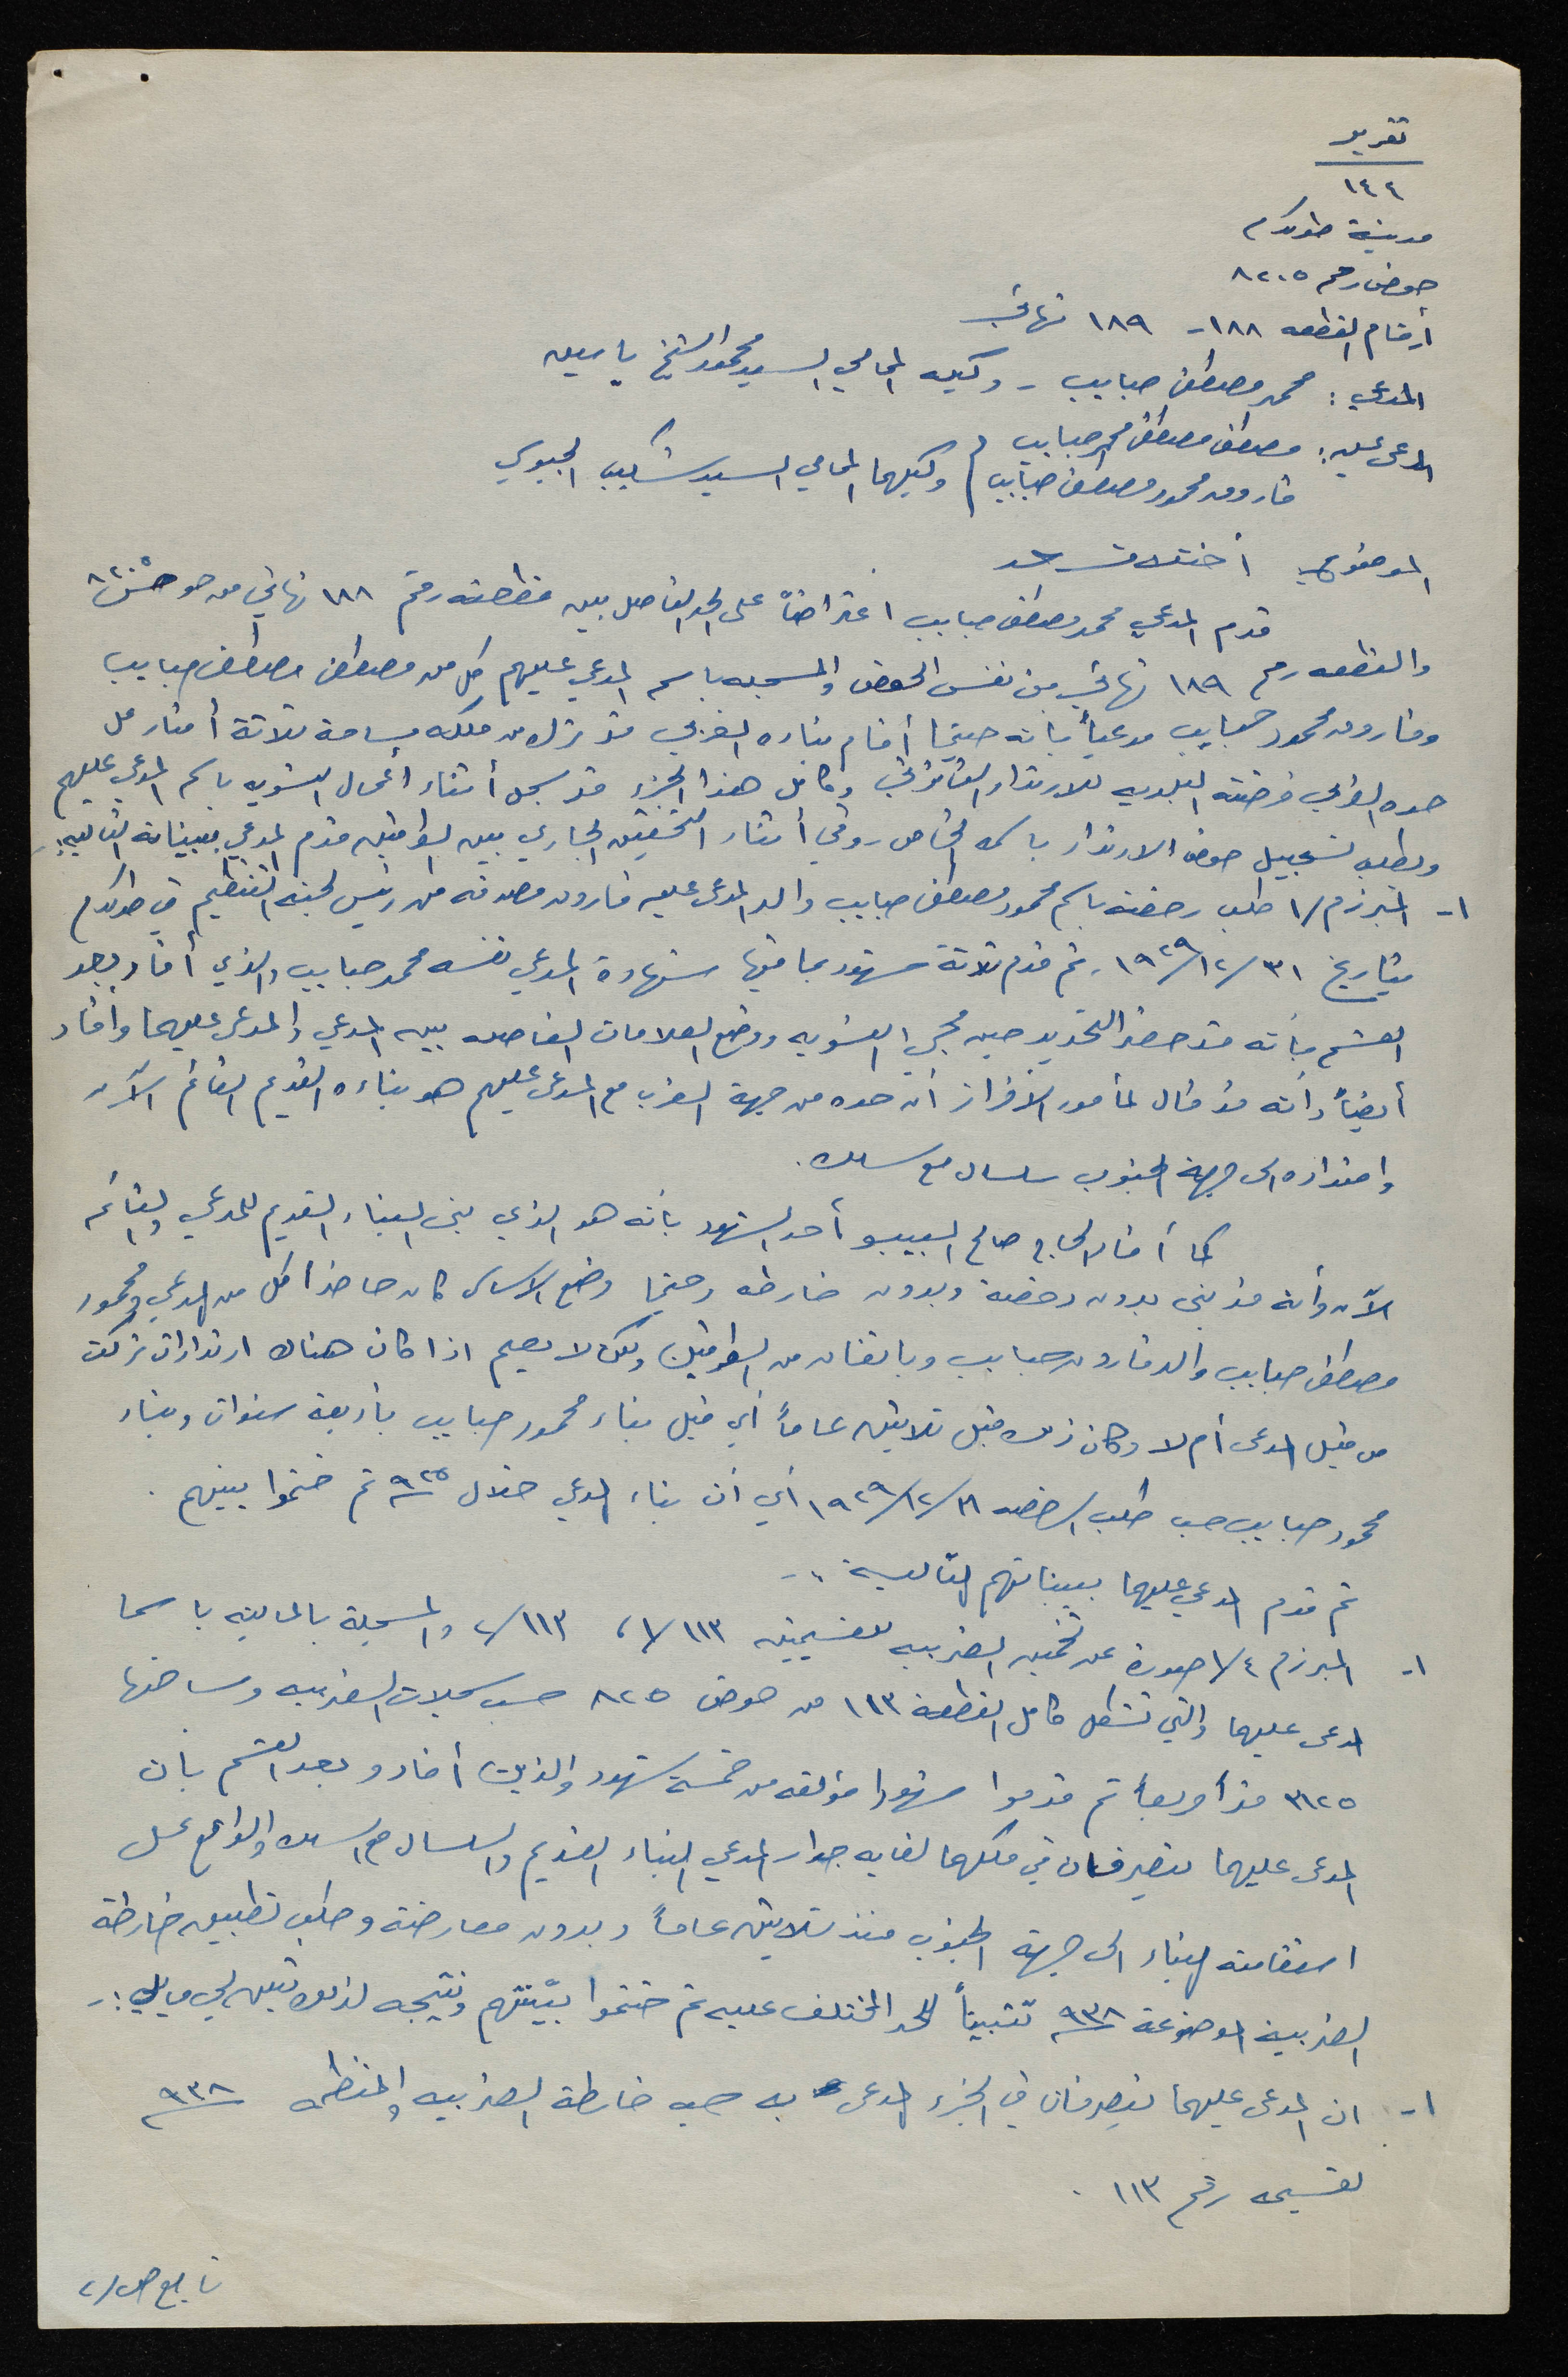 تقرير
١٤٤
مدينة طولكرم
حوض رقم ٨٢٠٥
أرقام القطعه ١٨٨ - ١٨٩ نهائي
المدعي : محمد مصطفى حبايب - وكيله المحامي السيد محمود الشيخ ياسين
المدعى عليه : مصطفى مصطفى محمد حبايب
فاروق محمود مصطفى حبايب ) وكيلهما المحامي السيد شكيب الجيوسي
الموضوع أختلاف حد
قدم المدعي محمد مصطفى حبايب اعتراضاً على الحد الفاصل بين قطعته رقم ١٨٨ نهائي من حوض ٨٢٠٥
والقطعه رقم ١٨٩ نهائي من نفس الحوض والمسجله باسم المدعي عليهم كل من مصطفى مصطفى حبايب
وفاروق محمود حبايب مدعياً بانه حينما أقام بناءه الغربي قد ترك من ملكه مسافة ثلاثة أمتار على
حده الغربي فرضته البلديه للارتداد القانوني وكامل هذا الجزء قد سجل أثناء أعمال التسويه باسم المدعي عليهم
وطلب تسجيل حوض الارتداد باسمه الخاص وفي أثناء التحقيق الجاري بين الطرفين قدم المدعي ببيناته التاليه :-
١- المبرز م/١ طلب رخصة باسم محمود مصطفى حبايب والد المدعى عليه فاروق مصدقه من رئيس لجنة التنظيم في طولكرم
بتاريخ ٣١/١٢/١٩٢٩ . ثم قدم ثلاثة شهود بما فيها شهادة المدعي نفسه محمد حبايب والذي أفاد بعد
القسم بأنه قد حضر التحديد حين مجيئ التسويه ووضع العلامات الفاصله بين المدعي والمدعى عليهما وأفاد
أيضاً وأنه قد قال لمأمور الأفراز أن حده من جهة الغرب مع المدعى عليهم هو بناءه القديم القائم الآن
وامتداده الى جهة الجنوب سلسال مع سلك .
كما أفاد الحاج صالح أحد الشهود بأنه هو الذي بنى البناء القديم للمدعي والقائم
الآن وأنه قد بنى بدون رخصة وبدون خارطه وحينما وضع الاساس كان حاضرا كل من المدعي ومحمود
مصطفى حبايب والد فاروق حبايب وباتفاق من الطرفين ولكن لا يعلم اذا كان هناك ارتدادات تركت
من قبل المدعى أم لا وكان ذلك قبل ثلاثين عاماً أي قبل بناء محمود حبايب بأربعة سنوات وبناء
محمود حبايب حسب طلب الرخصه ٣١/١٢/١٩٢٩ أي ان بناء المدعي خلال ٩٢٥ ثم ختموا بينهم .
ثم قدم المدعي عليهما ببيناتهم التالية :-
١- المبرز م ع/١ صورة عن تخمين الضريبه للقسيمتين ١١٣/١ ، ١١٣/٢ والمسجلة بالماليه باسما
المدعى عليهما والتي تشكل كامل القطعة ١١٣ من حوض ٨٢٠٥ حسب سجلات الضريبه ومساحتها
٣١٢٥ متراً مربعاً ثم قدموا شهودا مؤلفه من خمسة شهود والذين أفادو بعد القسم بأن
المدعى عليهما يتصرفان في ملكهما لغاية جدار المدعي البناء القديم والسلسال مع السلك والواقع على
استقامة البناء الى جهة الجنوب منذ ثلاثين عاماً وبدون معارضة وطلب تطبيق خارطة
الضريبه الموضوعة ٩٣٨ تثبيتاً للحد المختلف عليه ثم ختموا بيّنتهم ونتيجه لذلك تبين لي ما يلي :-
١- ان المدعى عليهما يتصرفان في الجزء المدعى به حسب خارطة الضريبه والمنظمه ٩٣٨
لقسيمه رقم ١١٣ .
تابع ص/٢